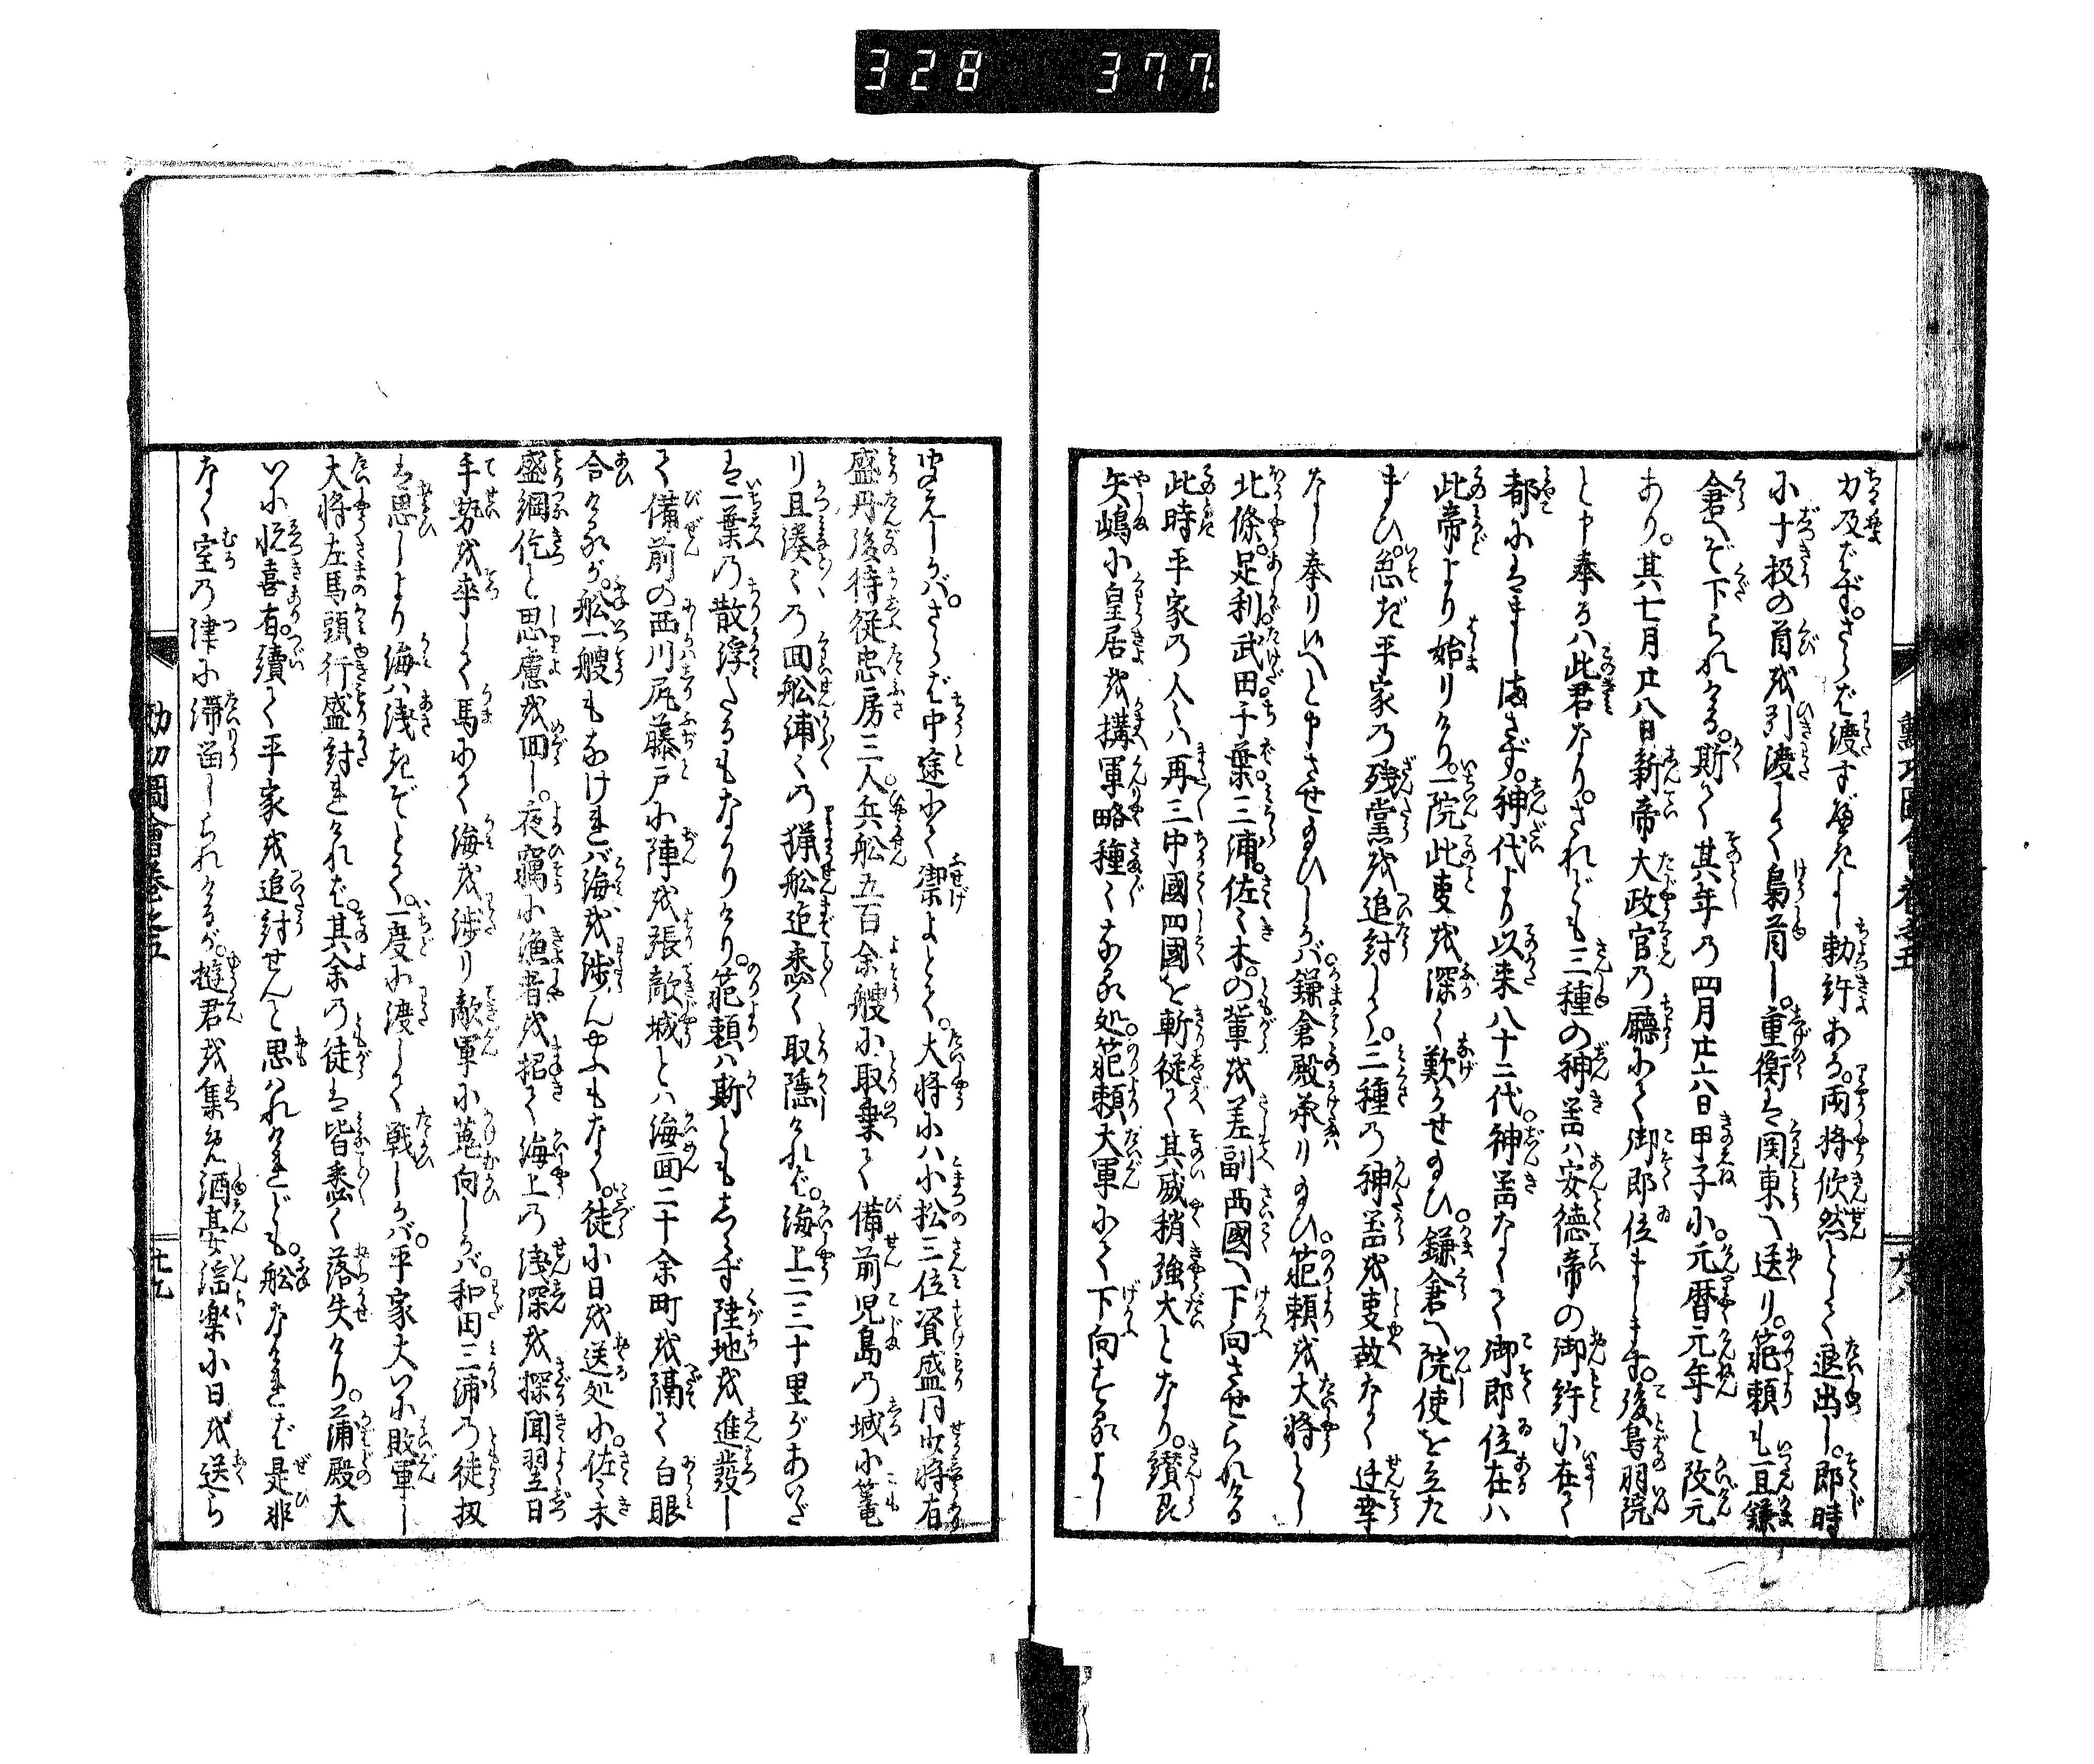 328 377
力及ばず。さらば渡すべきよし勅許ある。両将欣然として退出し。即時
に十級の首を引渡して梟首し。重衡は関東へ送り。範頼も一旦鎌
倉へぞ下られける。斯て其年の四月廿六日甲子に。元暦元年と改元
あり。其七月廿八日新帝大政官の廳にて御即位まします。後鳥羽院
と申奉るハ此君なり。されども三種の神器ハ安徳帝の御許に在て
都にはましまさず。神代より以来八十二代。神器なくて御即位在ハ
此帝より始りけり。一院此事を深く歎かせ給ひ。鎌倉へ院使を立た
まひ。急ぎ平家の残黨を追討して。三種の神器を事故なく迁幸
なし奉り候へと申させ給ひしかバ。鎌倉殿承り給ひ。範頼を大将とし
北條。足利。武田。千葉。三浦。佐々木。の輩を差副西國へ下向させられける
此時平家の人々ハ再三中國四國を斬従へ其威稍強大となり。讃岐
矢嶋に皇居を構軍略種々なる処。範頼大軍にて下向するよし
聞えしかバ。さらば中途にて禦よとて。大将にハ小松三位資盛同少将有
盛丹後侍従忠房三人兵舩五百余艘に取乗て備前児島の城に篭
り且湊々の回舩浦々の猟舩迄悉く取隠けれバ。海上二三十里があいだ
は一葉の散浮たるもなかりけり。範頼ハ斯ともしらず陸地を進發し
て備前の西川尻藤戸に陣を張敵城とハ海面二十余町を隔て白眼
合けるが。舩一艘もなけれバ海を渉んやふもなく。徒に日を送処に。佐々木
盛綱佐と思慮を回し。夜竊に漁者を招て海上の浅深を探聞翌日
手勢を率して馬にて海を渉り敵軍に蒐向しかバ。和田三浦の徒扨
は思しより海ハ浅きぞとて。一度に渡して戦しかバ。平家大いに敗軍し
大将左馬頭行盛討れけれバ。其余の徒は皆悉く落失けり。蒲殿大
いに悦喜有。續て平家を追討せんと思ハれけれども。舩なけれバ是非
なく室の津に滞留しられけるが。遊君を集め酒宴淫楽に日を送ら
勲功圖會巻之五
廿八
勲功圖會巻之五
廿九